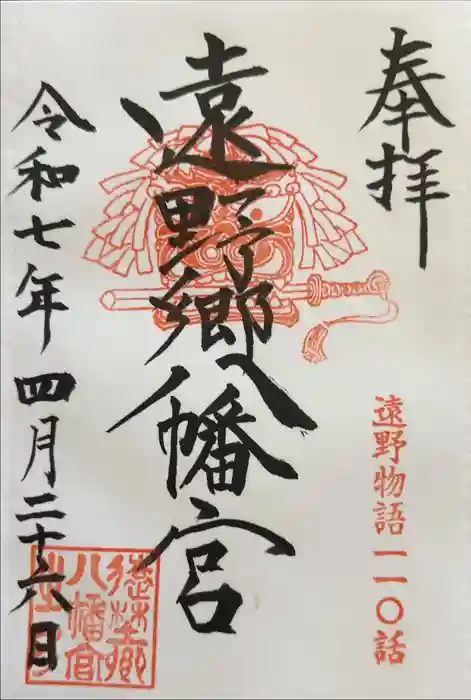 奉拝
遠野物語一一〇話
遠野郷八幡宮
令和七年四月二十六日
遠野郷
八幡宮